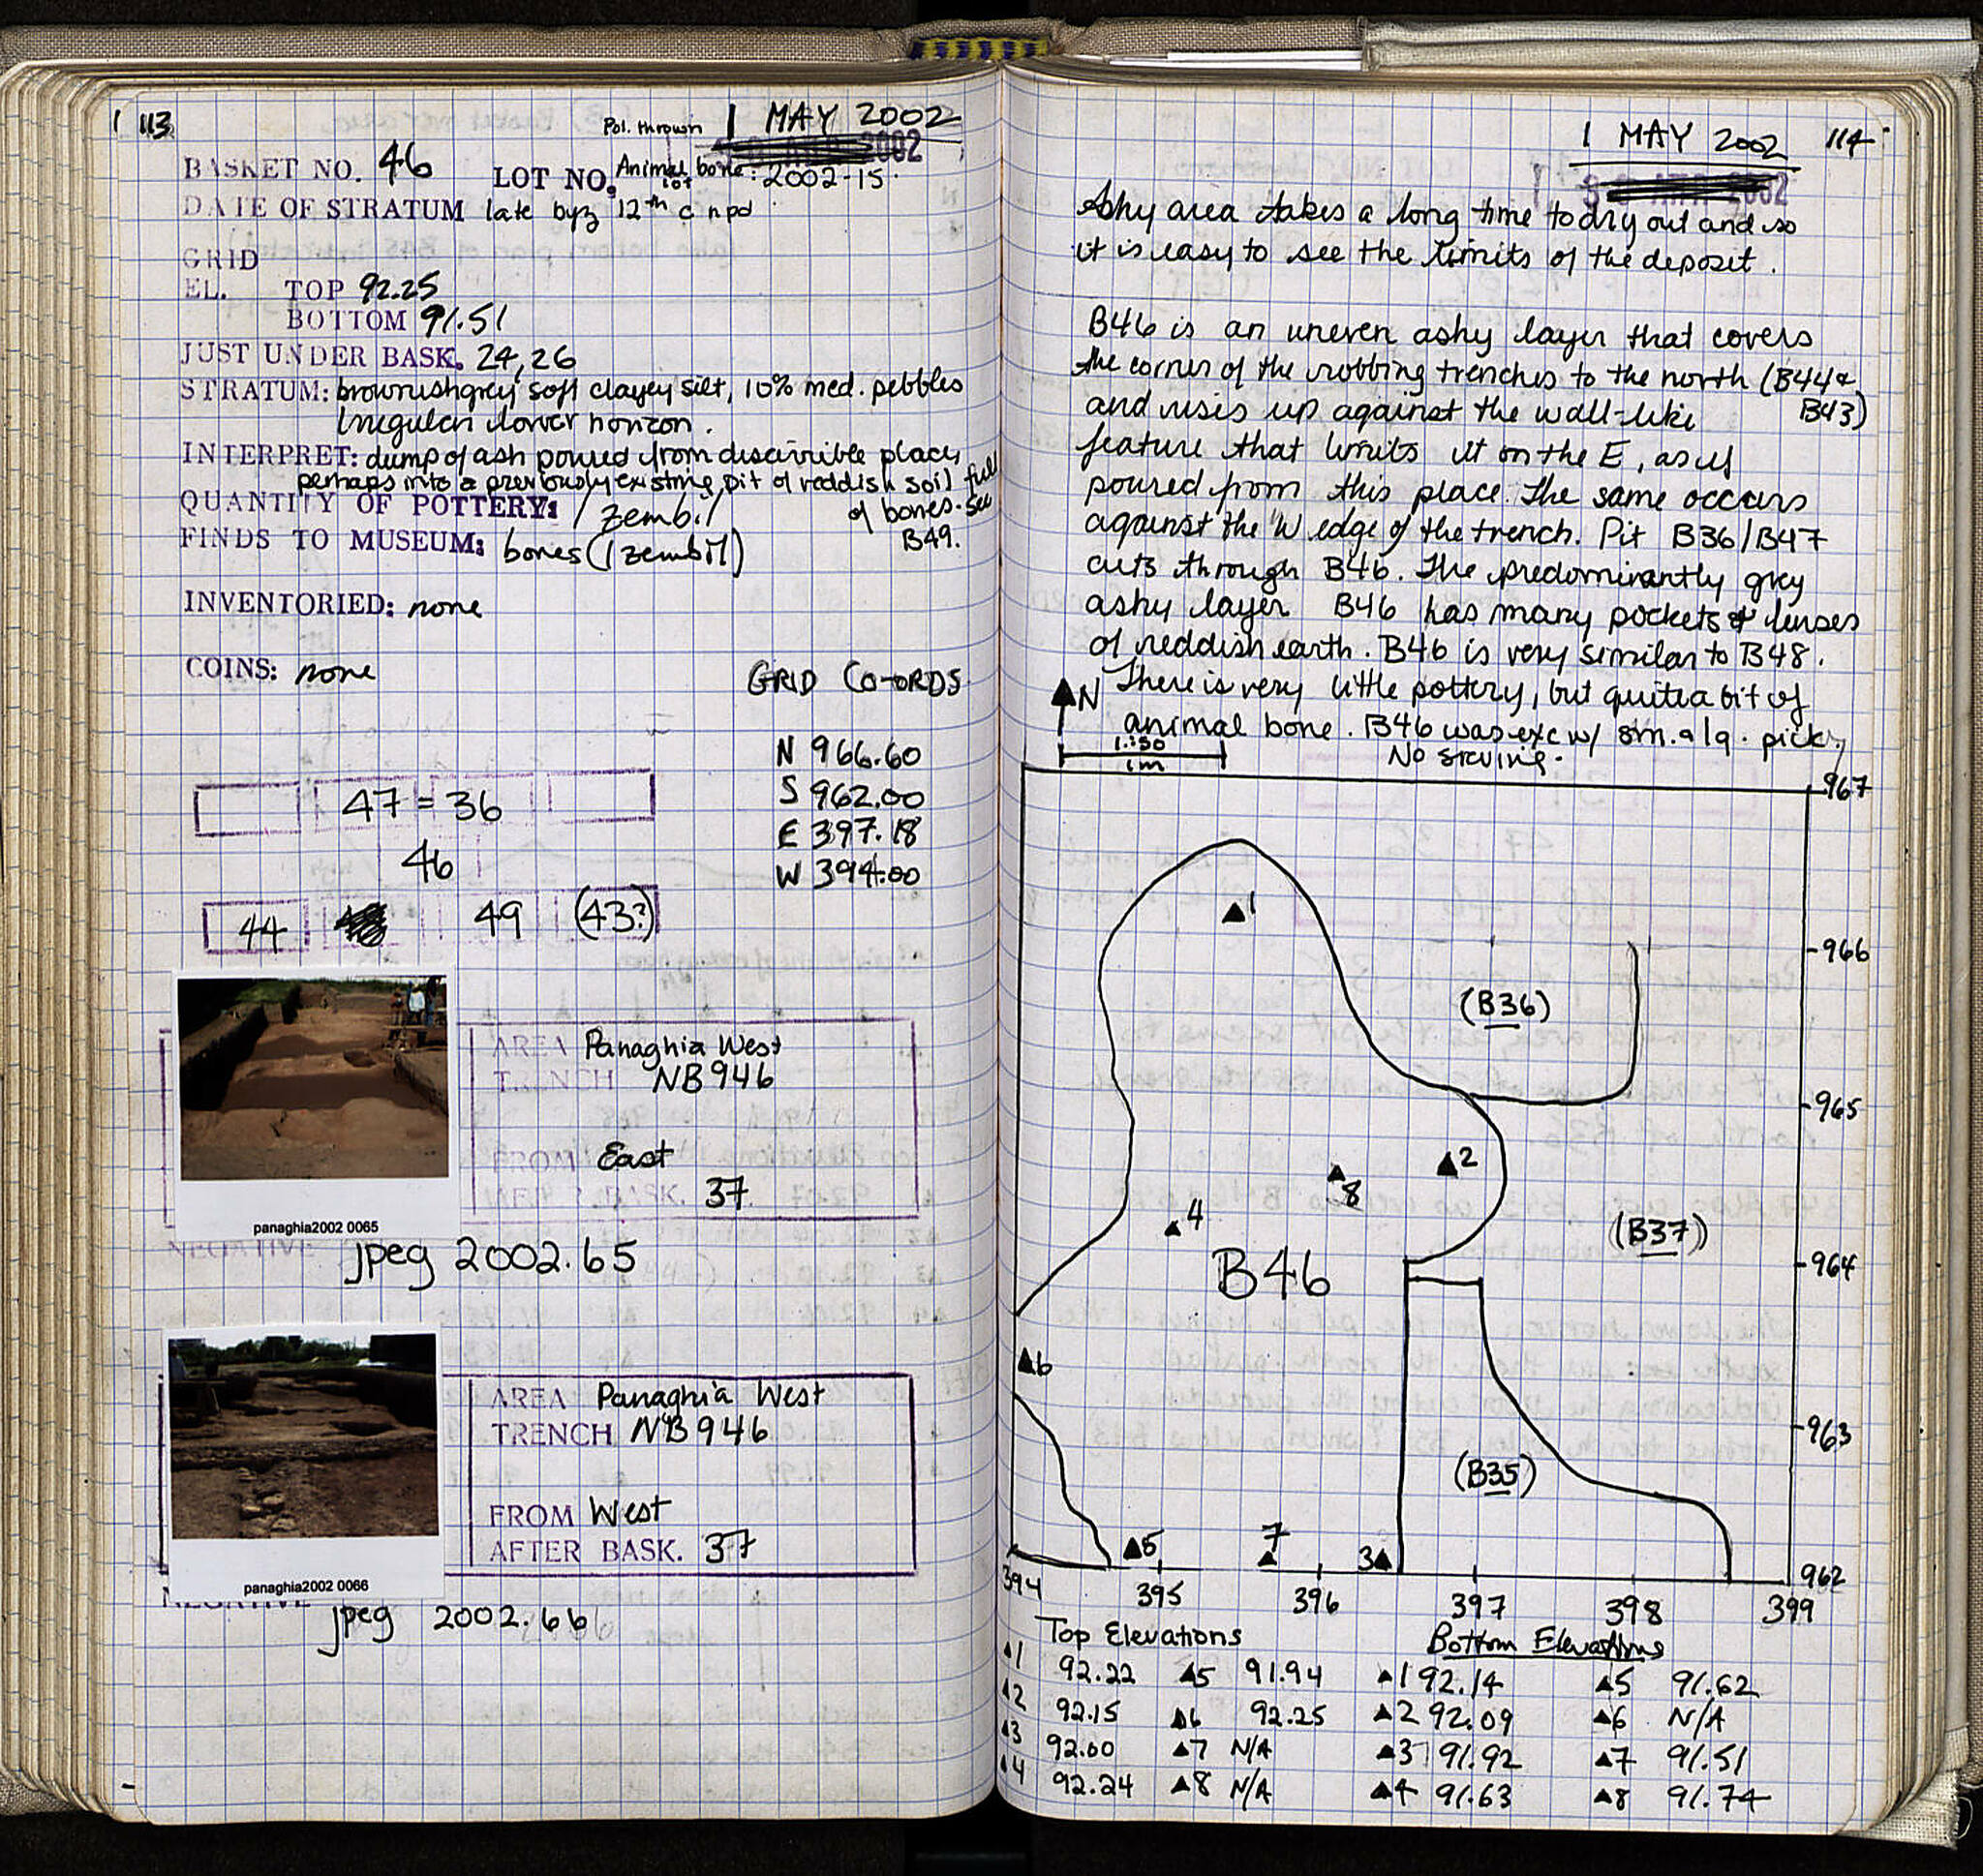 113
Pot. thrown 1 MAY 2002
2002
BASKET NO. 46 LOT NO. Animal bone: 2002-15.
lot
DATE OF STRATUM late byz 12th c npd
GRID
EL. TOP 92.25
BOTTOM 91.51
JUST UNDER BASK. 24, 26
STRATUM: brownishgrey soft clayey silt, 10% med. pebbles
Irregular lower horizon.
INTERPRET: dump of ash poured from discernible places,
perhaps into a previously existing pit of reddish soil full
of bones. see
B49.
QUANTITY OF POTTERY: 1 zembil
FINDS TO MUSEUM: bones (1 zembil)
INVENTORIED: none
COINS: none
GRID CO-ORDS.
N 966.60
S 962.00
E 397.18
W 394.00
47 = 36
46
44 49 (43?)
AREA Panaghia West
TRENCH NB946
FROM East
AFTER BASK. 37
panaghia2002 0065
NEGATIVE
jpeg 2002.65
AREA Panaghia West
TRENCH NB946
FROM West
AFTER BASK. 37
panaghia2002 0066
NEGATIVE
jpeg 2002.66
1 MAY 2002 114
2002
Ashy area takes a long time to dry out and so
it is easy to see the limits of the deposit.
B46 is an uneven ashy layer that covers
the corner of the robbing trenches to the north (B44 &
B43)
and rises up against the wall-like
feature that limits it on the E, as if
poured from this place. The same occurs
against the W edge of the trench. Pit B36/B47
cuts through B46. The predominantly grey
ashy layer B46 has many pockets & lenses
of reddish earth. B46 is very similar to B48.
There is very little pottery, but quite a bit of
animal bone. B46 was exc w/ sm. & lg. pick,
No sieving.
N
1:50
1m
967
966
965
964
963
962
1
(B36)
2
8
4
B46
(B37)
6
(B35)
5
7
3
394 395 396 397 398 399
Top Elevations Bottom Elevations
▲1 92.22 ▲5 91.94 ▲1 92.14 ▲5 91.62
▲2 92.15 ▲6 92.25 ▲2 92.09 ▲6 N/A
▲3 92.00 ▲7 N/A ▲3 91.92 ▲7 91.51
▲4 92.24 ▲8 N/A ▲4 91.63 ▲8 91.74